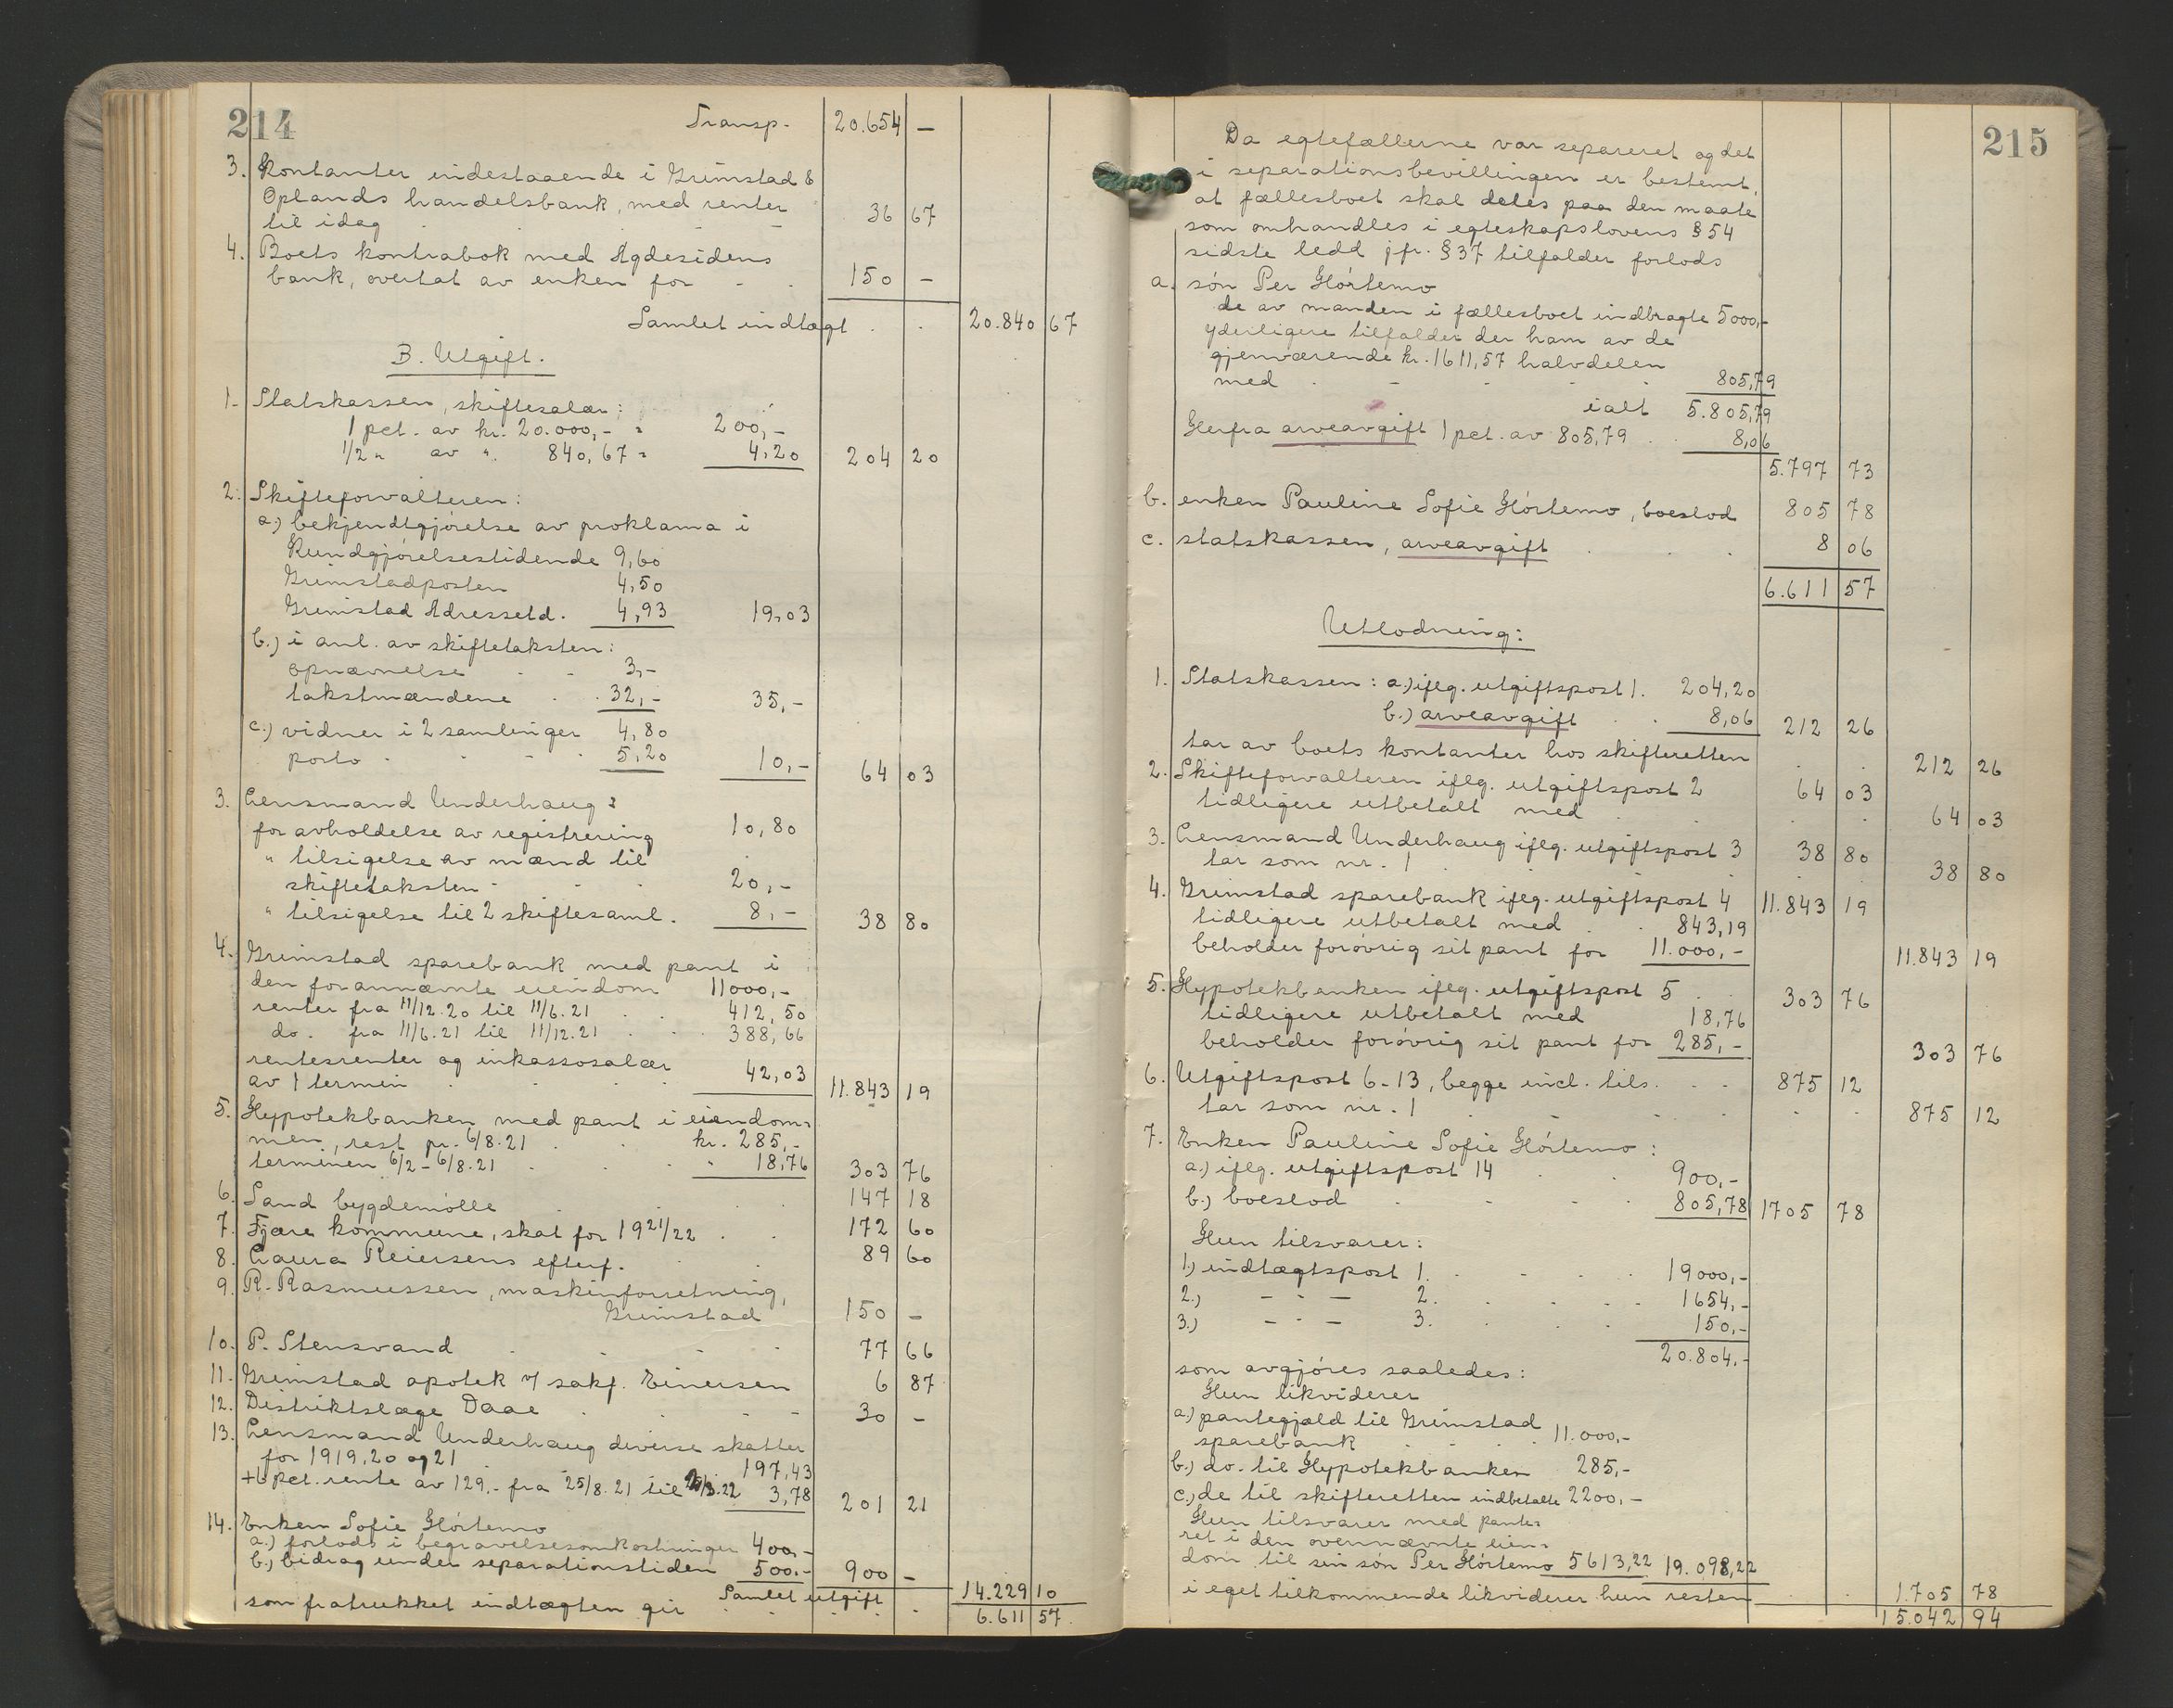 214
Transp. 20.654 –
3. Kontanter indestaaende i Grimstad &
Oplands handelsbank, med renter
til idag 36 67
4. Boets kontrabok med Agdesidens
bank, overtat av enken for 150 –
Samlet indtægt 20.840 67
B. Utgift.
1. Statskassen, skiftesalær:
1 pct. av kr. 20.000,- = 200,-
1/2 " av " 840,67 = 4,20 204 20
2. Skifteforvalteren:
a.) bekjendtgjørelse av proklama i
Kundgjørelsestidende 9,60
Grimstadposten 4,50
Grimstad Adressetd. 4,93 19,03
b.) i anl. av skiftetaksten:
opnævnelse 3,-
takstmændene 32,- 35,-
c.) vidner i 2 samlinger 4,80
porto 5,20 10,- 64 03
3. Lensmand Underhaug:
for avholdelse av registrering 10,80
" tilsigelse av mænd til
skiftetaksten 20,-
" tilsigelse til 2 skiftesaml. 8,- 38 80
4. Grimstad sparebank med pant i
den forannævnte eiendom 11000,-
renter fra 11/12.20 til 11/6.21 412,50
do. fra 11/6.21 til 11/12.21 388,66
rentesrenter og inkassosalær
av 1 termin 42,03 11.843 19
5. Hypotekbanken med pant i eiendom=
men, rest pr. 6/8.21 kr. 285,-
terminen 6/2 - 6/8.21 " 18,76 303 76
6. Sand bygdemølle 147 18
7. Fjære kommune, skat for 1921/22 172 60
8. Laura Reiersens efterf. 89 60
9. R. Rasmussen, maskinforretning,
Grimstad 150 –
10. P. Stensvand 77 66
11. Grimstad apotek v/ sakf. Einersen 6 87
12. Distriktslæge Daae 30 –
13. Lensmand Underhaug diverse skatter
for 1919, 20 og 21 197,43
+ 6 pct. rente av 129.- fra 25/8.21 til 3.22 3,78 201 21
14. Enken Sofie Hórtemo
a.) forlods i begravelsesomkostninger 400,-
b.) bidrag under separationstiden 500.- 900 –
Samlet utgift 14.229 10
som fratrukket indtægten gir 6.611 57
215
Da egtefællerne var separeret og det
i separationsbevillingen er bestemt,
at fællesboet skal deles paa den maate
som omhandles i egteskapslovens § 54
sidste ledd jfr. § 37 tilfalder forlods
a. són Per Hórtemo
de av manden i fællesboet indbragte 5000,-
yderligere tilfalder der ham av de
gjenværende kr. 1611,57 halvdelen
med 805,79
ialt 5.805,79
Herfra arveavgift 1 pct. av 805,79 8,06
5.797 73
b. enken Pauline Sofie Hórtemo, boeslod 805 78
c. statskassen, arveavgift 8 06
6.611 57
Utlodning:
1. Statskassen: a.) iflg. utgiftspost 1. 204,20
b.) arveavgift 8,06 212 26
tar av boets kontanter hos skifteretten 212 26
2. Skifteforvalteren iflg. utgiftspost 2 64 03
tidligere utbetalt med 64 03
3. Lensmand Underhaug iflg. utgiftspost 3 38 80
tar som nr. 1 38 80
4. Grimstad sparebank iflg. utgiftspost 4 11.843 19
tidligere utbetalt med 843,19
beholder forøvrig sit pant for 11.000,- 11.843 19
5. Hypotekbanken iflg. utgiftspost 5 303 76
tidligere utbetalt med 18,76
beholder forøvrig sit pant for 285,- 303 76
6. Utgiftspost 6-13, begge incl. tils. 875 12
tar som nr. 1 875 12
7. Enken Pauline Sofie Hórtemo:
a.) iflg. utgiftspost 14 900,-
b.) boeslod 805,78 1705 78
Hun tilsvarer:
1.) indtægtspost 1. 19000,-
2.) – " – 2. 1654,-
3.) – " – 3. 150,-
20.804,-
som avgjóres saaledes:
Hun likviderer
a.) pantegjæld til Grimstad
sparebank 11.000,-
b.) do. til Hypotekbanken 285,-
c.) de til skifteretten indbetalte 2200,-
Hun tilsvarer med pante=
ret i den ovennævnte eien=
dom til sin són Per Hórtemo 5613,22 19.098,22
i eget tilkommende likviderer hun resten 1.705 78
15.042 94